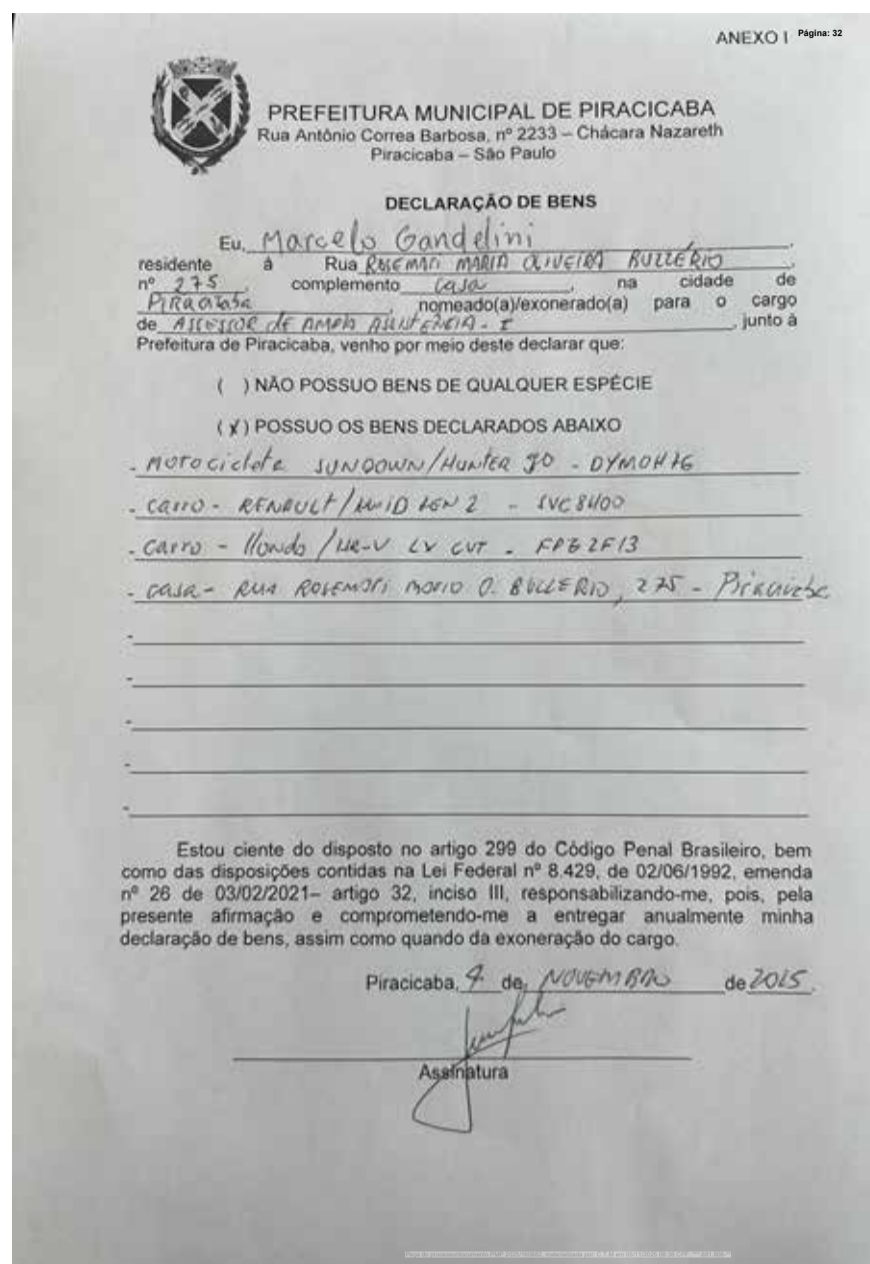 ANEXO I Página: 32
PREFEITURA MUNICIPAL DE PIRACICABA
Rua Antônio Correa Barbosa, nº 2233 – Chácara Nazareth
Piracicaba – São Paulo
DECLARAÇÃO DE BENS
Eu, Marcelo Gandelini,
residente à Rua ROSEMARI MARIA OLIVEIRA BULLERIO,
nº 275, complemento CASA, na cidade de
PIRACICABA, nomeado(a)/exonerado(a) para o cargo
de ASSESSOR DE AMPLA ASSISTENCIA - I, junto à
Prefeitura de Piracicaba, venho por meio deste declarar que:
( ) NÃO POSSUO BENS DE QUALQUER ESPÉCIE
(X) POSSUO OS BENS DECLARADOS ABAIXO
- Motocicleta SUNDOWN/HUNTER 90 - DYMOH76
- carro - RENAULT/KWID ZEN 2 - SVC8H00
- carro - Honda/HR-V LX CVT -
- casa - RUA ROSEMARI MARIA O. BULLERIO, 275 - Piracicaba
-
-
-
-
-
Estou ciente do disposto no artigo 299 do Código Penal Brasileiro, bem
como das disposições contidas na Lei Federal nº 8.429, de 02/06/1992, emenda
nº 26 de 03/02/2021– artigo 32, inciso III, responsabilizando-me, pois, pela
presente afirmação e comprometendo-me a entregar anualmente minha
declaração de bens, assim como quando da exoneração do cargo.
Piracicaba, 4 de NOVEMBRO de 2025.
Assinatura